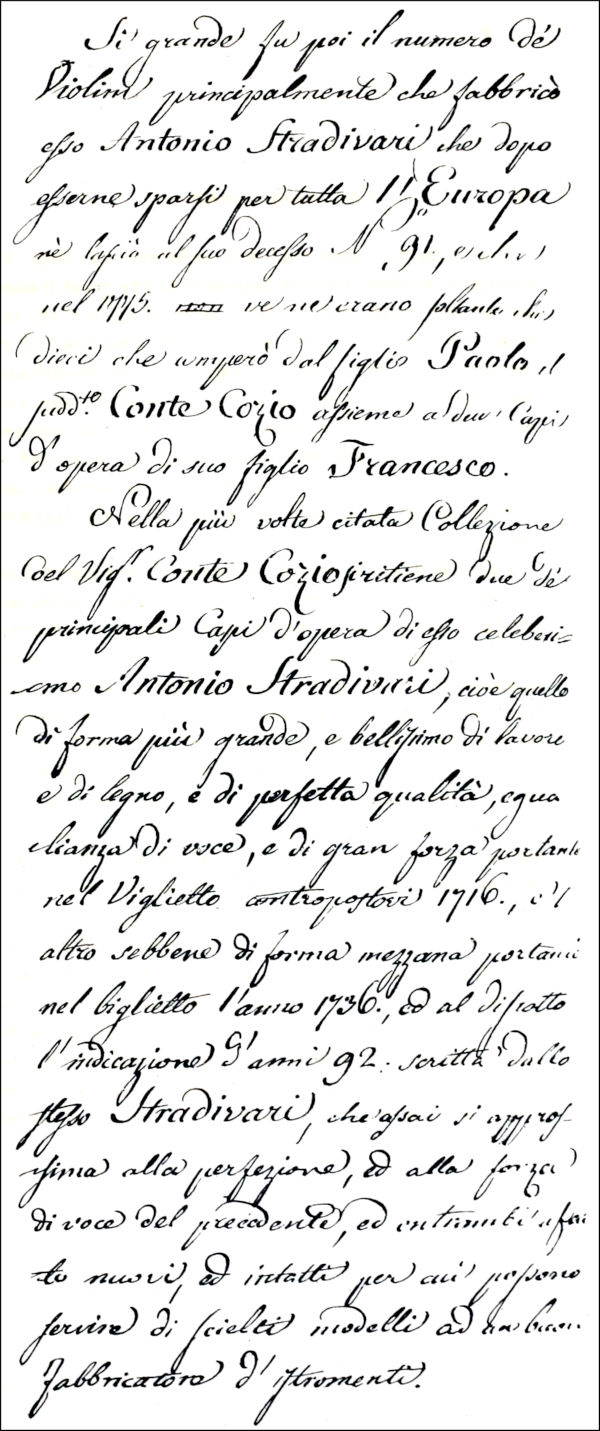 Si grande fu poi il numero dé
Violini principalmente che fabbricò
esso Antonio Stradivari che dopo
esserne sparsi per tutta l'Europa
nè lasciò al suo decesso N° 91.,
nel 1775. ve ne erano soltanto
dieci che comperò dal figlio Paolo, il
sudd.to Conte Cozio assieme a due Capi
d'opera di suo figlio Francesco.
Nella più volte citata Collezione
del Sig.r Conte Cozio si ritiene due dé
principali Capi d'opera di esso celeberi=
=mo Antonio Stradivari, cioè quello
di forma più grande, e bellissimo di lavoro
e di legno, e di perfetta qualità, egua
lianza di voce, e di gran forza portante
nel Viglietto contropostovi 1716., e l'
altro sebbene di forma mezzana portante
nel biglietto l'anno 1736., ed al disotto
l'indicazione d'anni 92. scritta dallo
stesso Stradivari, che assai si appros-
sima alla perfezione, ed alla forza
di voce del precedente, ed entrambi affat
to nuovi, ed intatti per cui possono
servire di scielti modelli ad un buon
Fabbricatore d'istromenti.